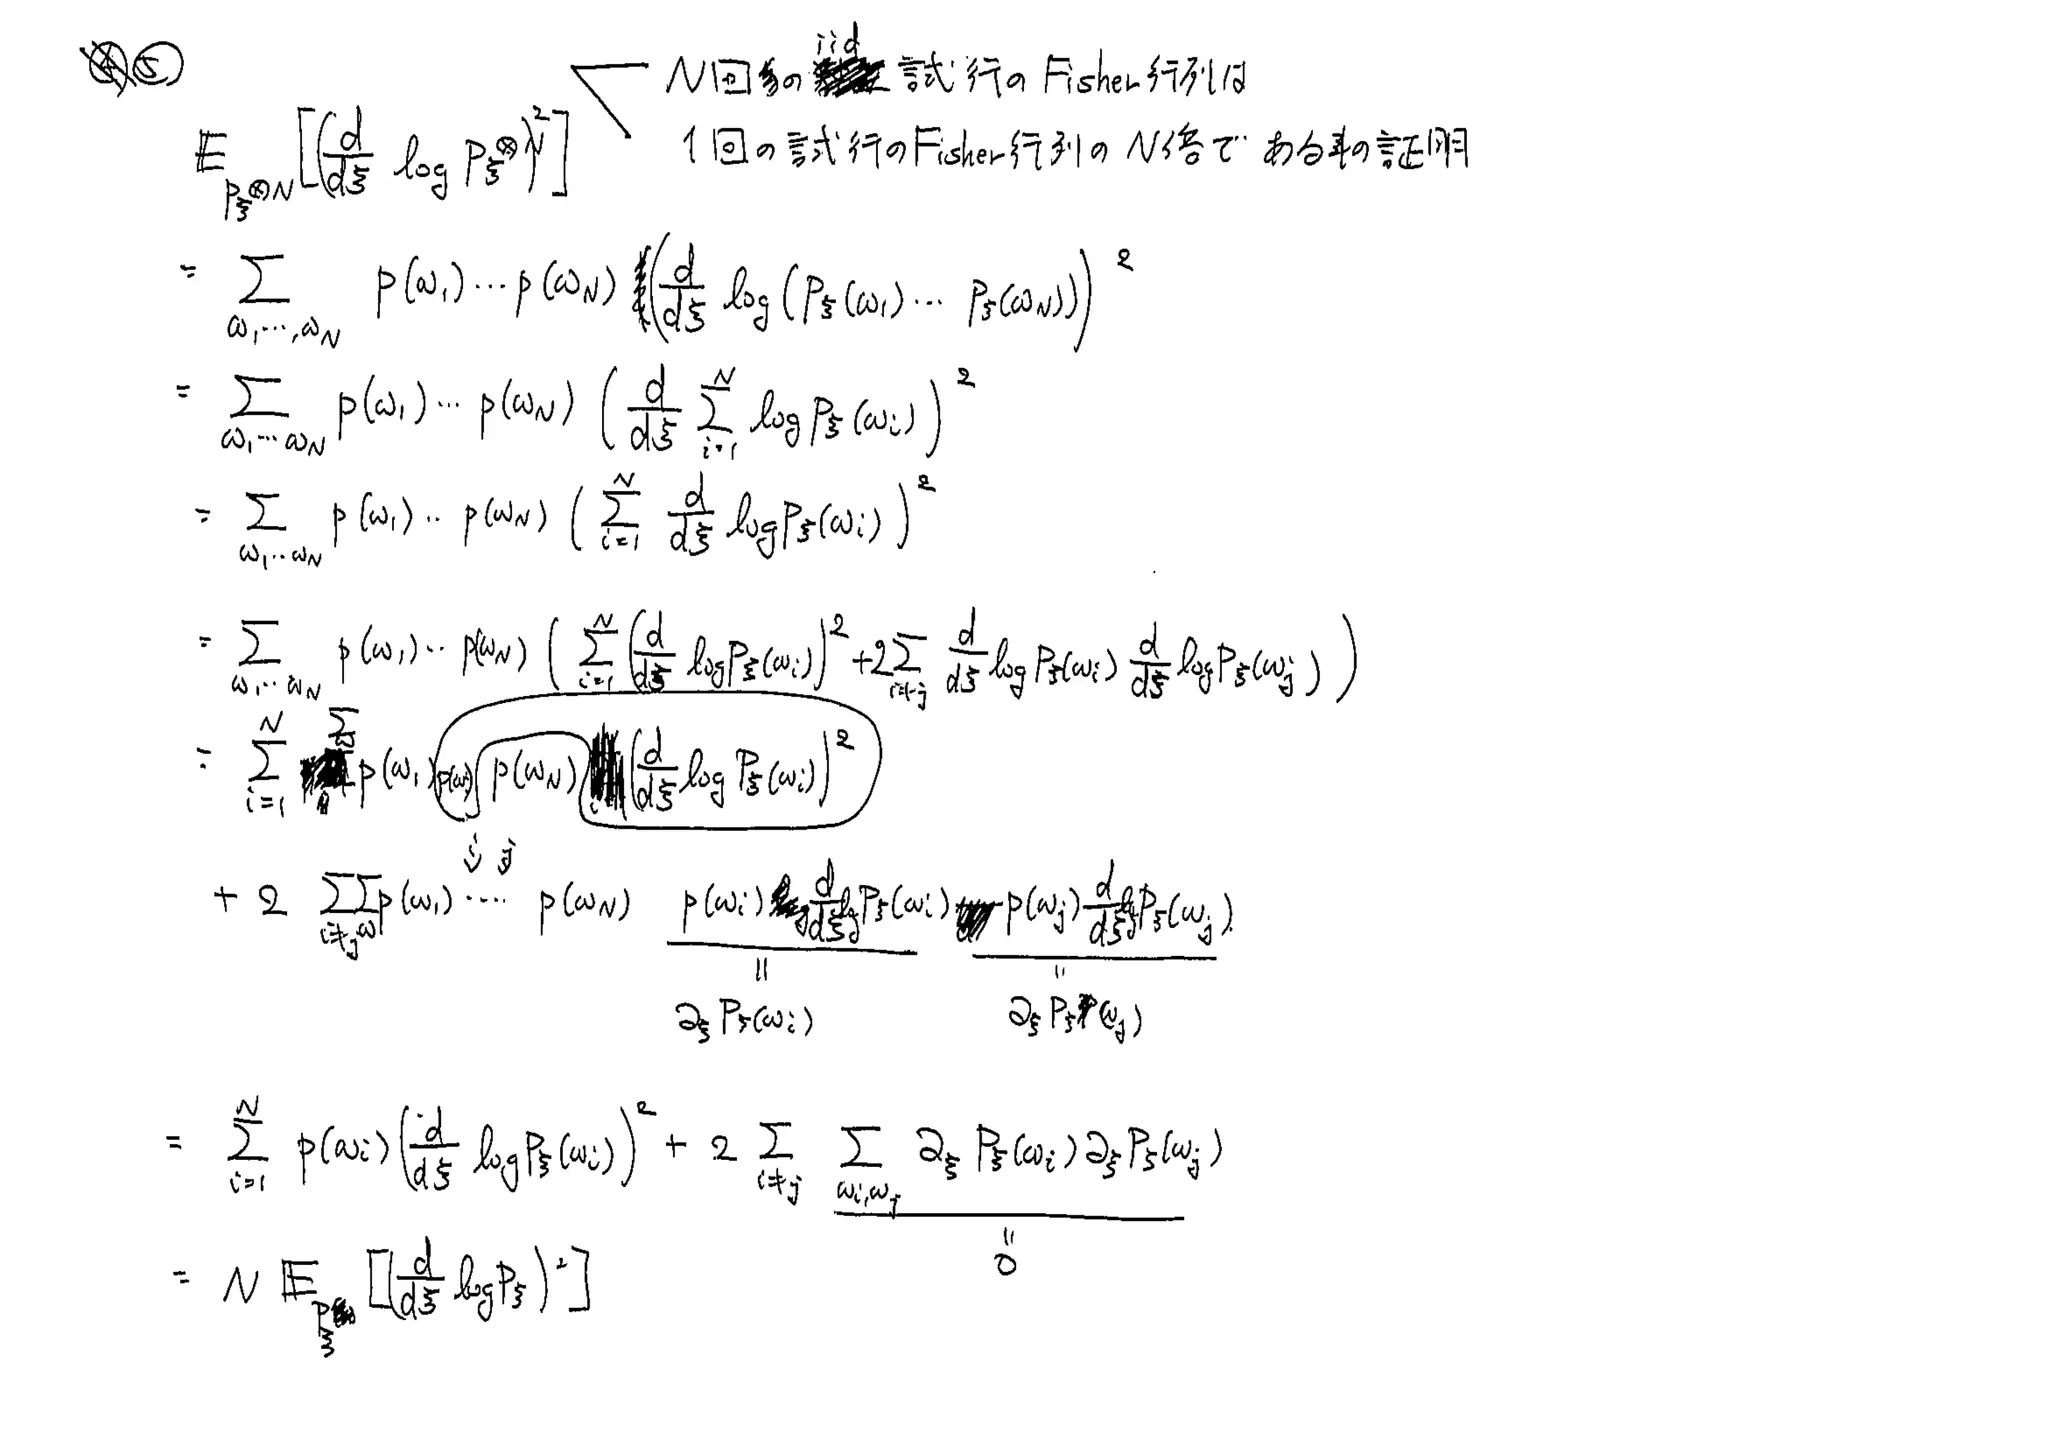 ⑤
N回の iid 試行の Fisher行列は
1回の試行のFisher行列の N倍である事の証明
E_{P_ξ^{⊗N}} [ ( d/dξ log P_ξ^{⊗N} )^2 ]
= Σ_{ω_1,…,ω_N} p(ω_1)…p(ω_N) ( d/dξ log ( P_ξ(ω_1)… P_ξ(ω_N) ) )^2
= Σ_{ω_1…ω_N} p(ω_1)… p(ω_N) ( d/dξ Σ_{i=1}^{N} log P_ξ(ω_i) )^2
= Σ_{ω_1…ω_N} p(ω_1)‥ p(ω_N) ( Σ_{i=1}^{N} d/dξ log P_ξ(ω_i) )^2
= Σ_{ω_1…ω_N} p(ω_1)‥ p(ω_N) ( Σ_{i=1}^{N} ( d/dξ log P_ξ(ω_i) )^2 + 2 Σ_{i≠j} d/dξ log P_ξ(ω_i) d/dξ log P_ξ(ω_j) )
= Σ_{i=1}^{N} Σ_ω p(ω_1) p(ω_i) p(ω_N) ( d/dξ log P_ξ(ω_i) )^2
i j
+ 2 Σ_{i≠j} Σ_ω p(ω_1) ‥‥ p(ω_N) p(ω_i) d/dξ log P_ξ(ω_i) p(ω_j) d/dξ log P_ξ(ω_j)
= =
∂_ξ P_ξ(ω_i) ∂_ξ P_ξ(ω_j)
= Σ_{i=1}^{N} p(ω_i) ( d/dξ log P_ξ(ω_i) )^2 + 2 Σ_{i≠j} Σ_{ω_i,ω_j} ∂_ξ P_ξ(ω_i) ∂_ξ P_ξ(ω_j)
=
0
= N E_{P_ξ} [ ( d/dξ log P_ξ )^2 ]